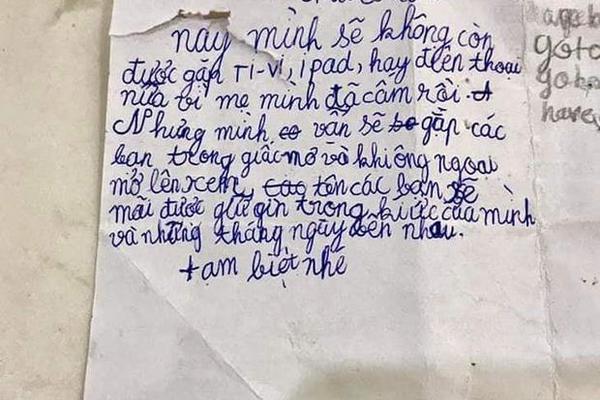 này mình sẽ không còn
được gặp Ti-vi, ipad, hay điện thoại
nữa vì mẹ mình đã cấm rồi.
Nhưng mình vẫn sẽ gặp các
bạn trong giấc mơ và khi ông ngoại
mở lên xem, tên các bạn sẽ
mãi được giữ gìn trong kí ức của mình
và những tháng ngày bên nhau.
tạm biệt nhé
goto
have